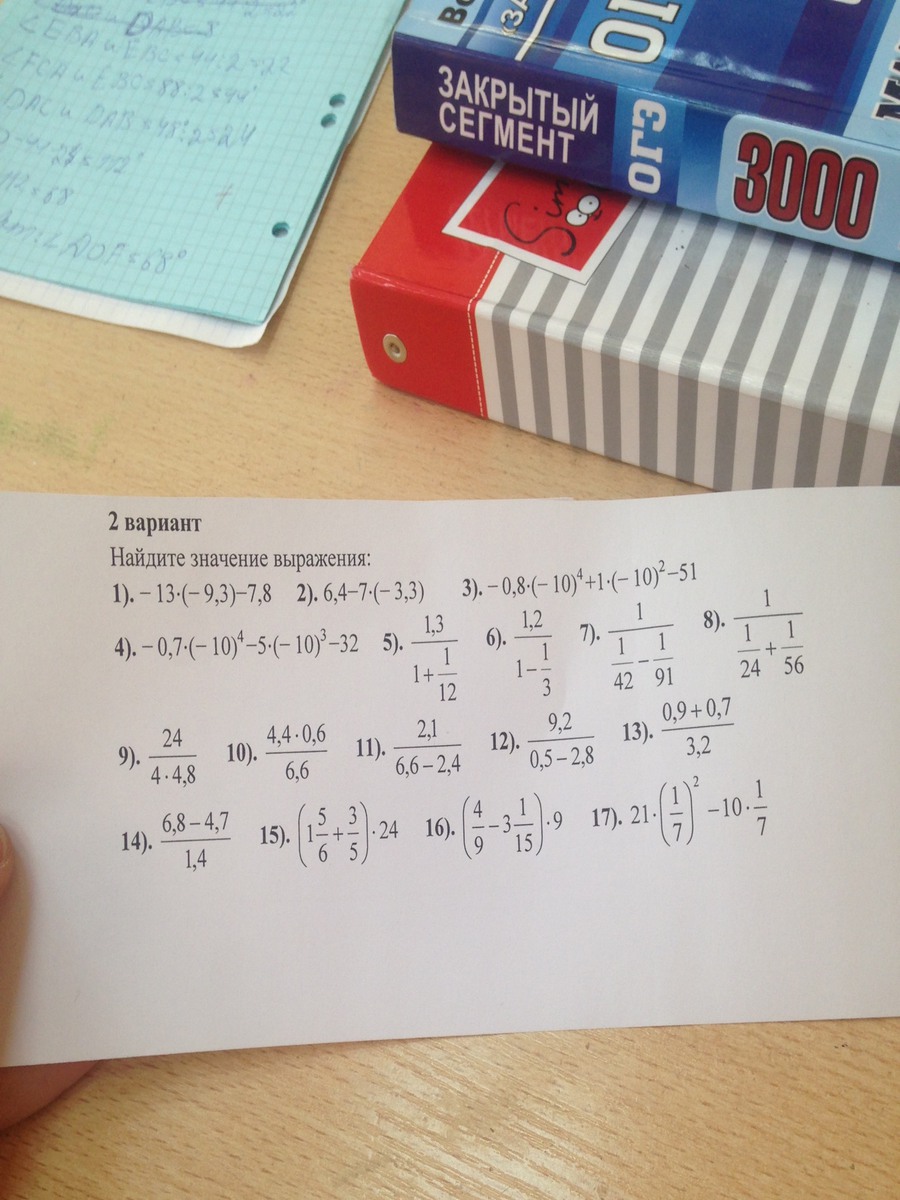 ∠EBA и EBC = 44:2=22
∠FCA и EBC = 88:2=44°
DAC и DAB = 48:2=24
112 = 68
∠AOF = 68°
ЗАКРЫТЫЙ
СЕГМЕНТ
ОГЭ
3000
Sim
2 вариант
Найдите значение выражения:
1). −13·(−9,3)−7,8 2). 6,4−7·(−3,3) 3). −0,8·(−10)⁴+1·(−10)²−51
4). −0,7·(−10)⁴−5·(−10)³−32 5). 1,3/(1+1/12) 6). 1,2/(1−1/3) 7). 1/(1/42−1/91) 8). 1/(1/24+1/56)
9). 24/(4·4,8) 10). (4,4·0,6)/6,6 11). 2,1/(6,6−2,4) 12). 9,2/(0,5−2,8) 13). (0,9+0,7)/3,2
14). (6,8−4,7)/1,4 15). (1 5/6+3/5)·24 16). (4/9−3 1/15)·9 17). 21·(1/7)²−10·1/7